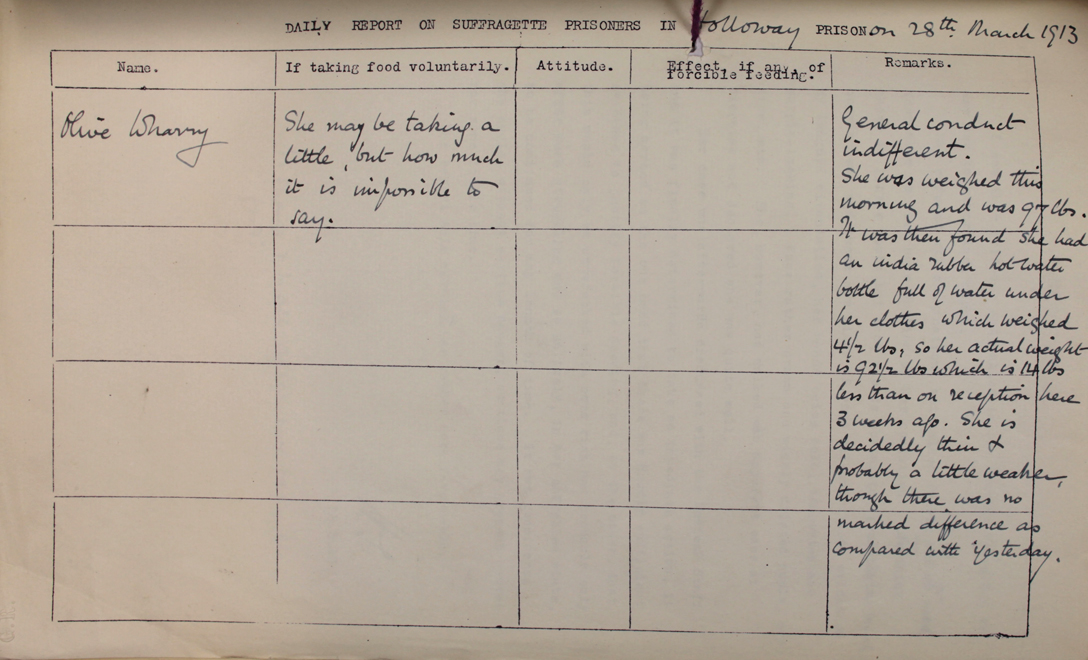 DAILY REPORT ON SUFFRAGETTE PRISONERS IN Holloway PRISON on 28th March 1913
Name.
If taking food voluntarily.
Attitude.
Effect, if any, of
forcible feeding.
Remarks.
Olive Wharry
She may be taking a
little, but how much
it is impossible to
say.
General conduct
indifferent.
She was weighed this
morning and was 97 lbs.
It was then found she had
an india rubber hot water
bottle full of water under
her clothes which weighed
4 1/2 lbs, so her actual weight
is 92 1/2 lbs which is 14 lbs
less than on reception here
3 weeks ago. She is
decidedly thin &
probably a little weaker,
though there was no
marked difference as
compared with yesterday.